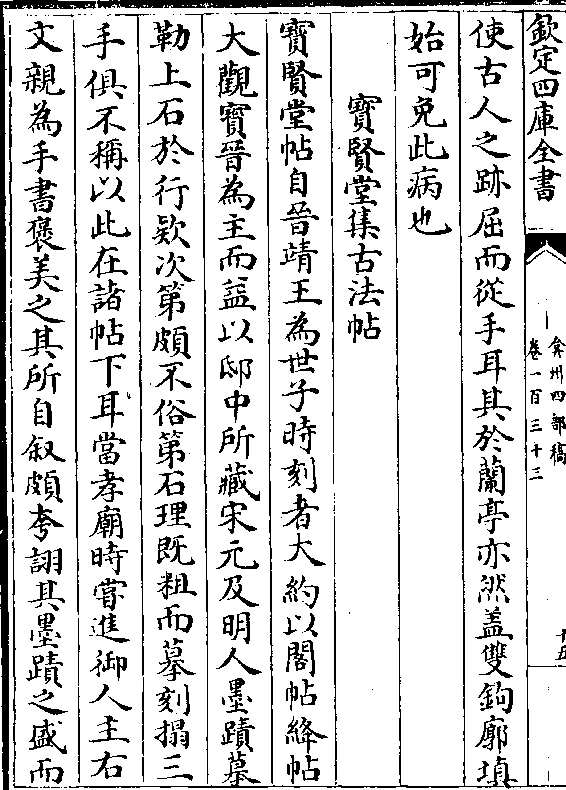 欽定四庫全書
弇州四部稿
卷一百三十三
十五
使古人之跡屈而從手耳其於蘭亭亦然盖雙鉤廓填
始可免此病也
寶賢堂集古法帖
寶賢堂帖自晉靖王為世子時刻者大約以閣帖絳帖
大觀寶晉為主而益以邸中所藏宋元及明人墨蹟摹
勒上石於行欵次第頗不俗第石理既粗而摹刻搨三
手俱不稱以此在諸帖下耳當孝廟時嘗進御人主右
文親為手書褒美之其所自叙頗夸詡其墨蹟之盛而